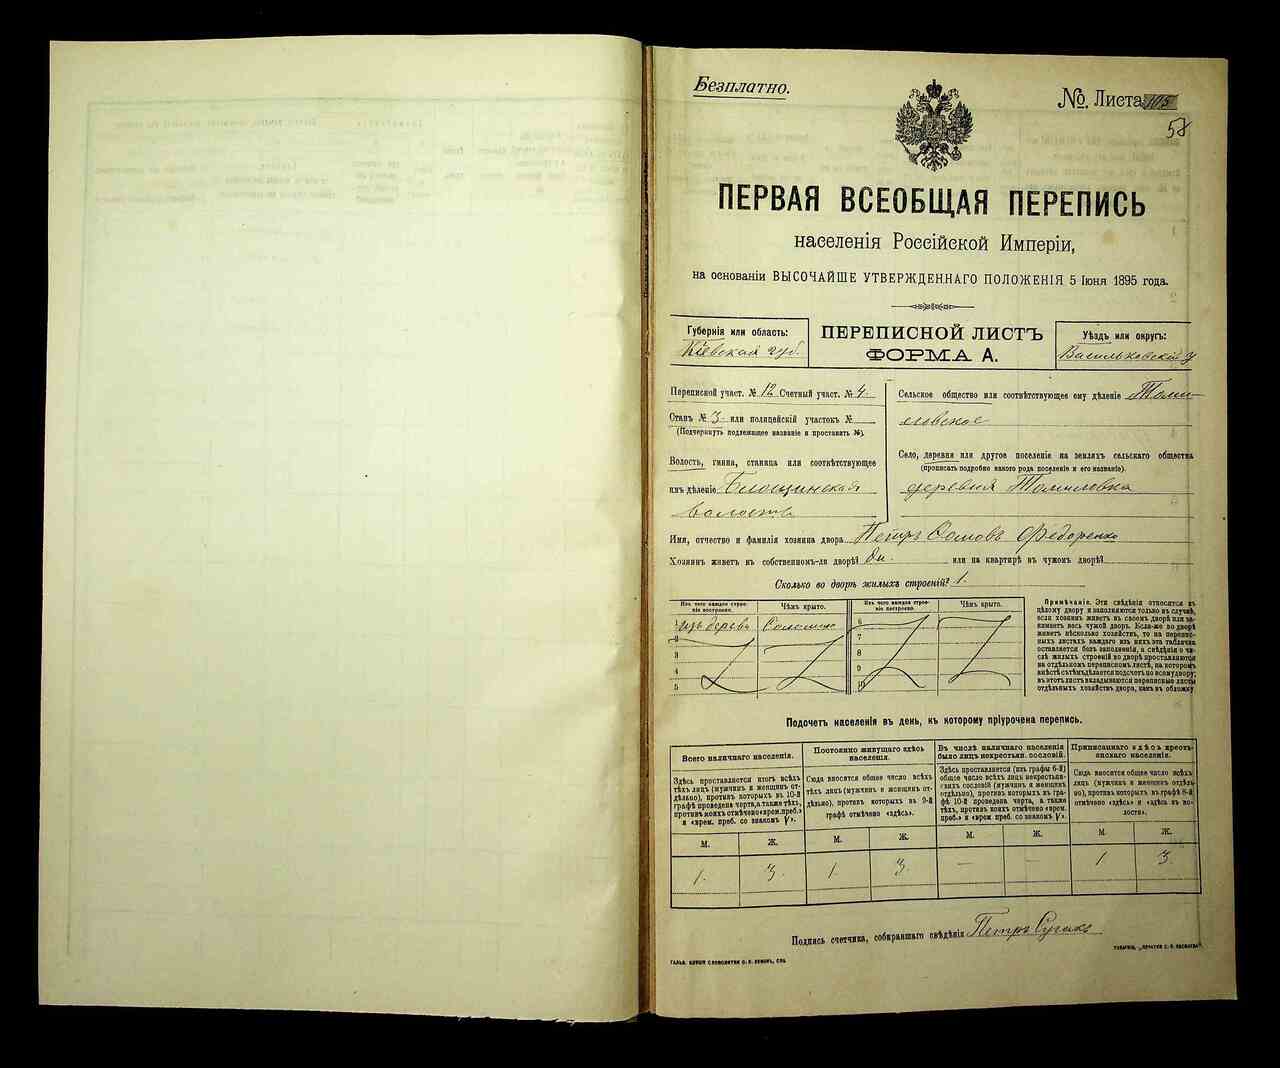 Безплатно.
№. Листа 105
58
ПЕРВАЯ ВСЕОБЩАЯ ПЕРЕПИСЬ
населенія Россійской Имперіи,
на основаніи ВЫСОЧАЙШЕ УТВЕРЖДЕННАГО ПОЛОЖЕНІЯ 5 Іюня 1895 года.
Губернія или область:
Кіевская губ.
ПЕРЕПИСНОЙ ЛИСТЪ
ФОРМА А.
Уѣздъ или округъ:
Васильковскій у
Переписной участ. № 12 Счетный участ. № 4.
Станъ № 3 или полицейскій участокъ №
(Подчеркнуть подлежащее названіе и проставить №).
Волость, гмина, станица или соотвѣтствующее
имъ дѣленіе Блощинская
волость
Сельское общество или соотвѣтствующее ему дѣленіе Томи-
ловское
Село, деревня или другое поселеніе на земляхъ сельскаго общества
(прописать подробно какого рода поселеніе и его названіе).
деревня Томиловка
Имя, отчество и фамилія хозяина двора Петръ Федоренко
Хозяинъ живетъ въ собственномъ-ли дворѣ? или на квартирѣ въ чужомъ дворѣ?
Сколько во дворѣ жилыхъ строеній? 1.
Изъ чего каждое строе-
ніе построено.
Чѣмъ крыто.
Изъ чего каждое строе-
ніе построено.
Чѣмъ крыто.
1 изъ дерева Соломою
2
3
4
5
6
7
8
9
10
Примѣчаніе. Эти свѣдѣнія относятся къ
цѣлому двору и заполняются только въ случаѣ,
если хозяинъ живетъ въ своемъ дворѣ или за-
нимаетъ весь чужой дворъ. Если-же во дворѣ
живетъ нѣсколько хозяйствъ, то на перепис-
ныхъ листахъ каждаго изъ нихъ эта табличка
оставляется безъ заполненія, а свѣдѣнія о чи-
слѣ жилыхъ строеній во дворѣ проставляются
на отдѣльномъ переписномъ листѣ, на которомъ
вмѣстѣ съ тѣмъ дѣлается подсчетъ по всему двору;
въ этотъ листъ вкладываются переписные листы
отдѣльныхъ хозяйствъ двора, какъ въ обложку
Подсчетъ населенія въ день, къ которому пріурочена перепись.
Всего наличнаго населенія.
Здѣсь проставляется итогъ всѣхъ
тѣхъ лицъ (мужчинъ и женщинъ от-
дѣльно), противъ которыхъ въ 10-й
графѣ проведена черта, а также тѣхъ,
противъ коихъ отмѣчено «врем. преб.»
и «врем. преб. со знакомъ V».
Постоянно живущаго здѣсь
населенія.
Сюда вносится общее число всѣхъ
тѣхъ лицъ (мужчинъ и женщинъ от-
дѣльно), противъ которыхъ въ 9-й
графѣ отмѣчено «здѣсь».
Въ числѣ наличнаго населенія
было лицъ некрестьян. сословій.
Здѣсь проставляется (изъ графы 6-й)
общее число всѣхъ лицъ некрестьян-
скихъ сословій (мужчинъ и женщинъ
отдѣльно), противъ которыхъ въ гра-
фѣ 10-й проведена черта, а также
тѣхъ, противъ коихъ отмѣчено «врем.
преб.» и «врем. преб. со знакомъ V».
Приписаннаго здѣсь кресть-
янскаго населенія.
Сюда вносится общее число всѣхъ
лицъ (мужчинъ и женщинъ отдѣль-
но), противъ которыхъ въ графѣ 8-й
отмѣчено «здѣсь» и «здѣсь въ во-
лости».
М. Ж. М. Ж. М. Ж. М. Ж.
1. 3. 1. 3. — — 1. 3.
Подпись счетчика, собиравшаго свѣдѣнія Петръ